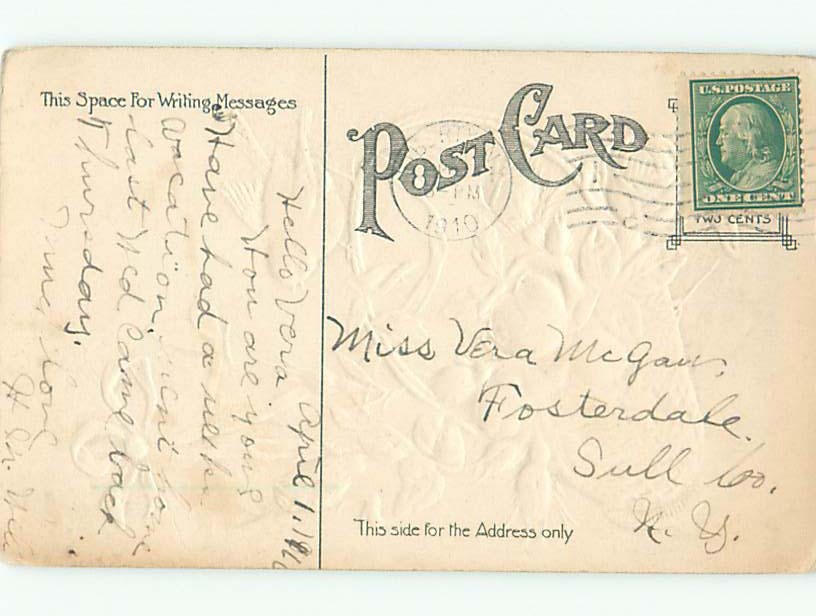 This Space For Writing Messages
POST CARD
U.S. POSTAGE
ONE CENT
TWO CENTS
PM
1910
April 1, 191
Hello Vera
How are you
Have had a week
vacation. Went home
last Wed came back
Thursday.
Miss Vera McGaw,
Fosterdale.
Sull Co.
N. Y.
This side for the Address only